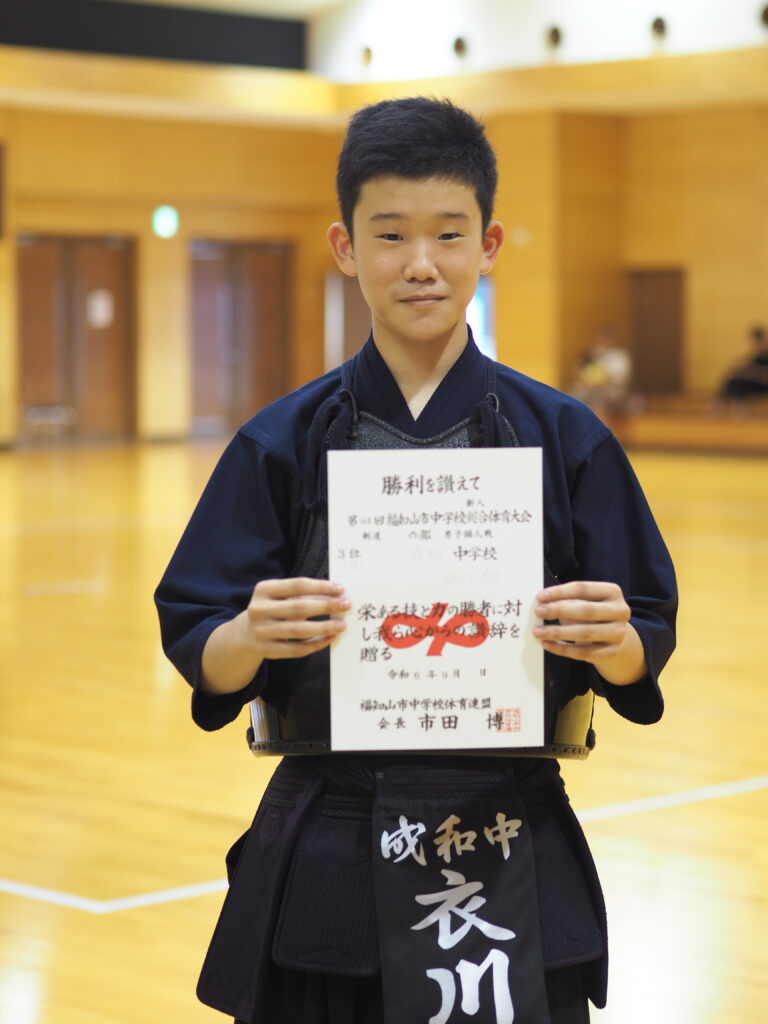 勝利を讃えて
新人
第64回福知山市中学校総合体育大会
剣道 の部 男子個人戦
3位 成和 中学校
栄ある技と力の勝者に対
し我ら心からの讃辞を
贈る
令和6年9月 日
福知山市中学校体育連盟
会長 市田 博
成和中
衣川